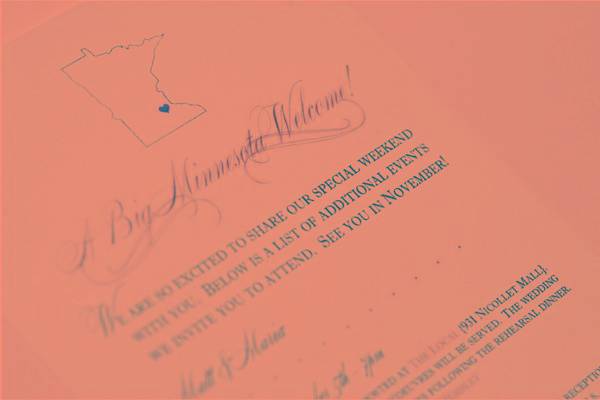 A Big Minnesota Welcome!
We are so excited to share our special weekend
with you. Below is a list of additional events
we invite you to attend. See you in November!
Matt & Maria
5th - 7pm
at The Local [931 Nicollet Mall].
will be served. The wedding
following the rehearsal dinner.